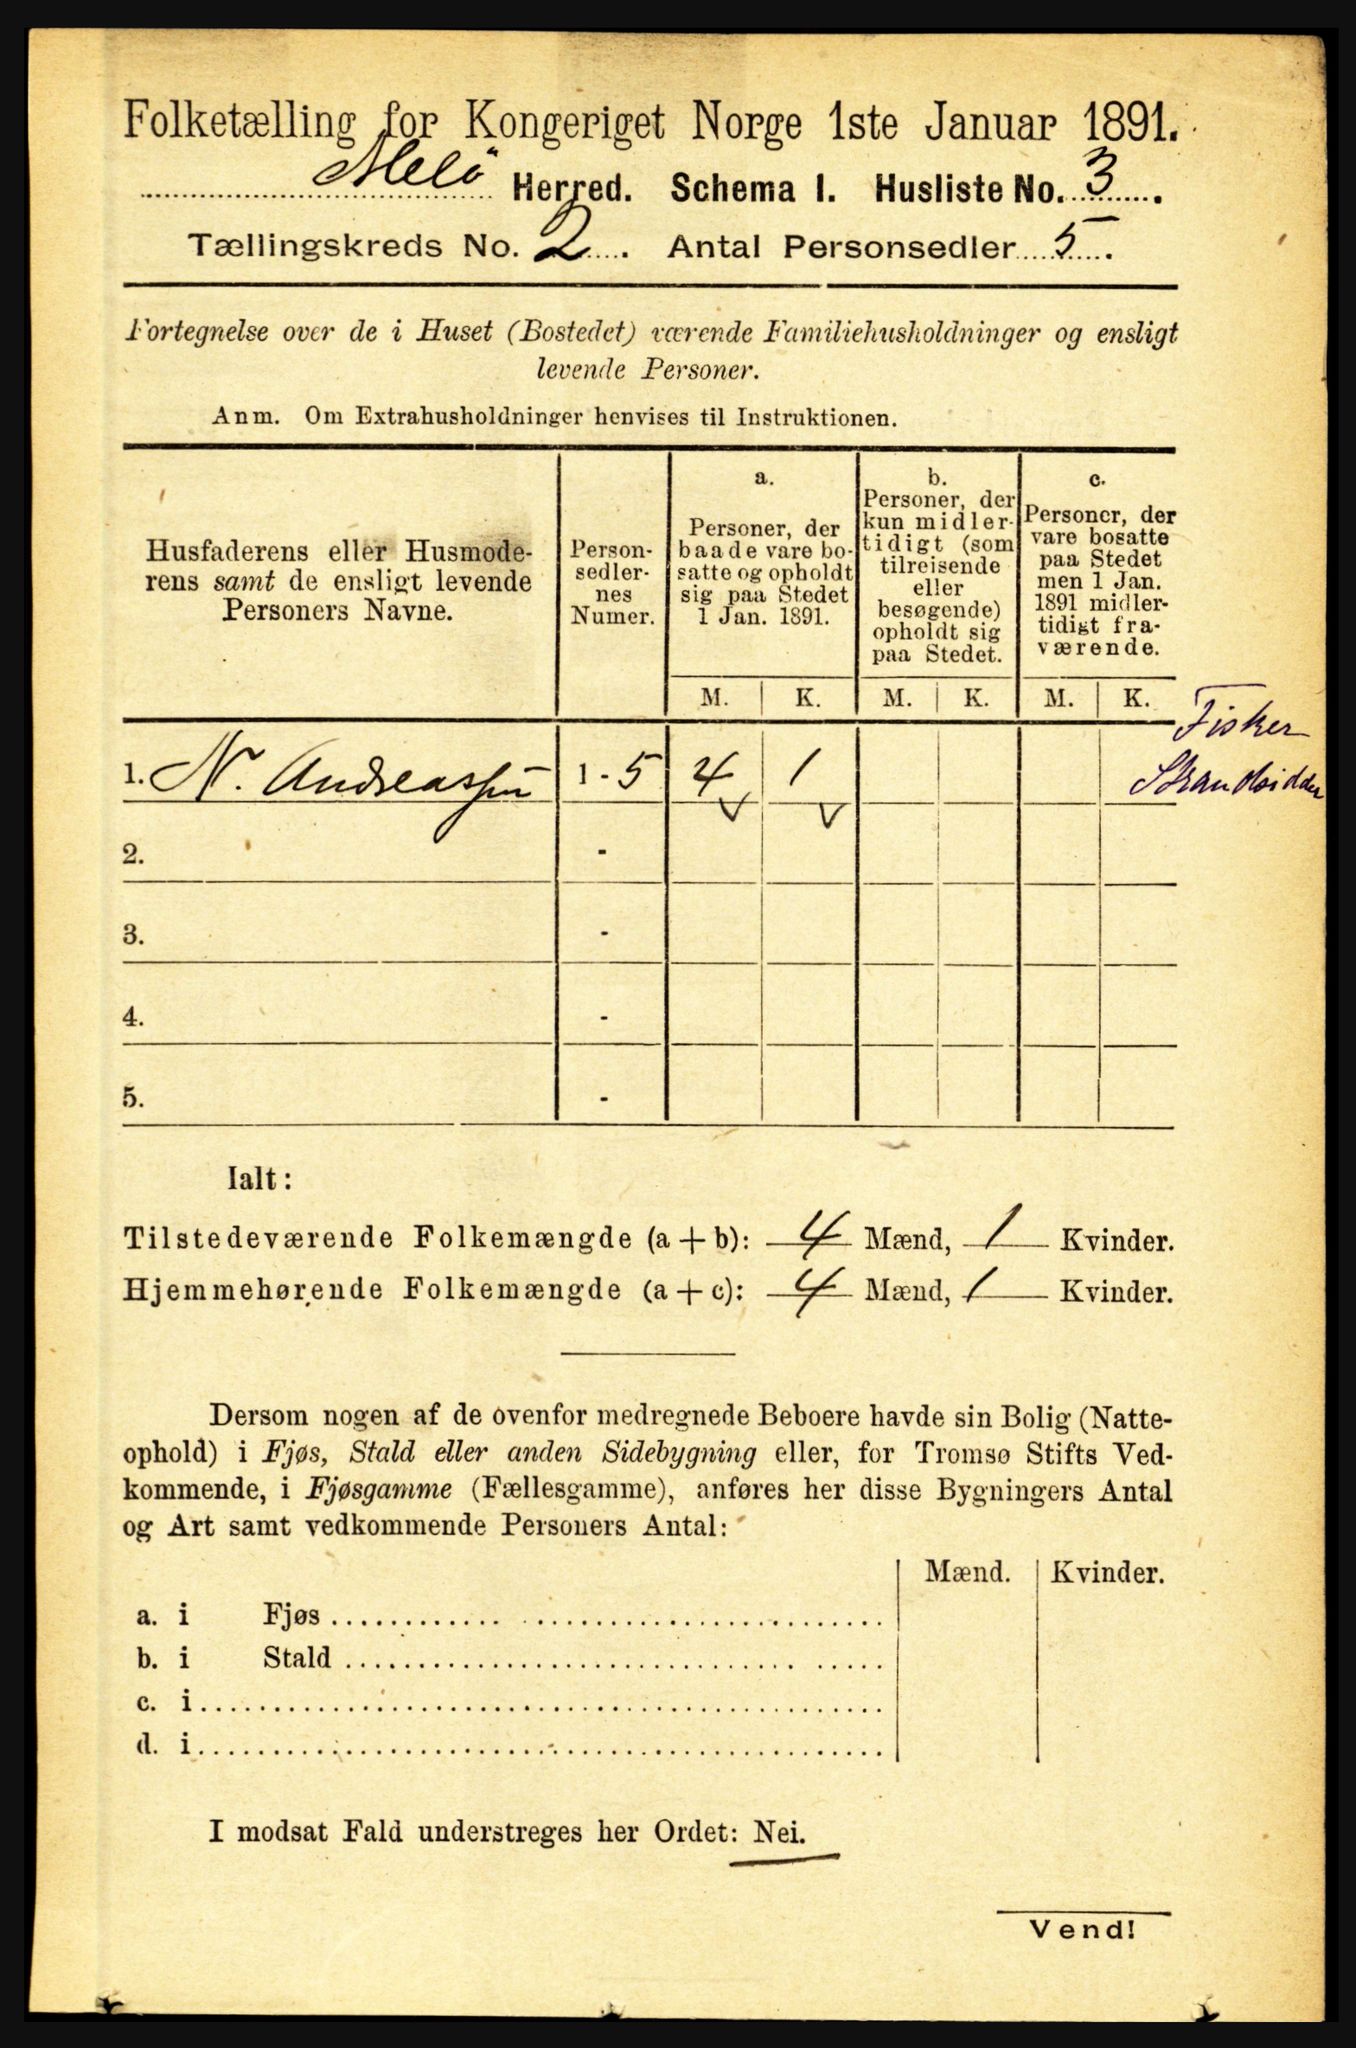 Folketælling for Kongeriget Norge 1ste Januar 1891.
Melö Herred. Schema I. Husliste No. 3.
Tællingskreds No. 2. Antal Personsedler 5.
Fortegnelse over de i Huset (Bostedet) værende Familiehusholdninger og ensligt
levende Personer.
Anm. Om Extrahusholdninger henvises til Instruktionen.
Husfaderens eller Husmode-
rens samt de ensligt levende
Personers Navne.
Person-
sedler-
nes
Numer.
a.
Personer, der
baade vare bo-
satte og opholdt
sig paa Stedet
1 Jan. 1891.
b.
Personer, der
kun midler-
tidigt (som
tilreisende
eller
besøgende)
opholdt sig
paa Stedet.
c.
Personer, der
vare bosatte
paa Stedet
men 1 Jan.
1891 midler-
tidigt fra-
værende.
M. K. M. K. M. K.
Fisker
1. N. Andreassen 1 - 5 4 1 Strandsidder
2. -
3. -
4. -
5. -
Ialt:
Tilstedeværende Folkemængde (a + b): 4 Mænd, 1 Kvinder.
Hjemmehørende Folkemængde (a + c): 4 Mænd, 1 Kvinder.
Dersom nogen af de ovenfor medregnede Beboere havde sin Bolig (Natte-
ophold) i Fjøs, Stald eller anden Sidebygning eller, for Tromsø Stifts Ved-
kommende, i Fjøsgamme (Fællesgamme), anføres her disse Bygningers Antal
og Art samt vedkommende Personers Antal:
Mænd. Kvinder.
a. i Fjøs
b. i Stald
c. i
d. i
I modsat Fald understreges her Ordet: Nei.
Vend!